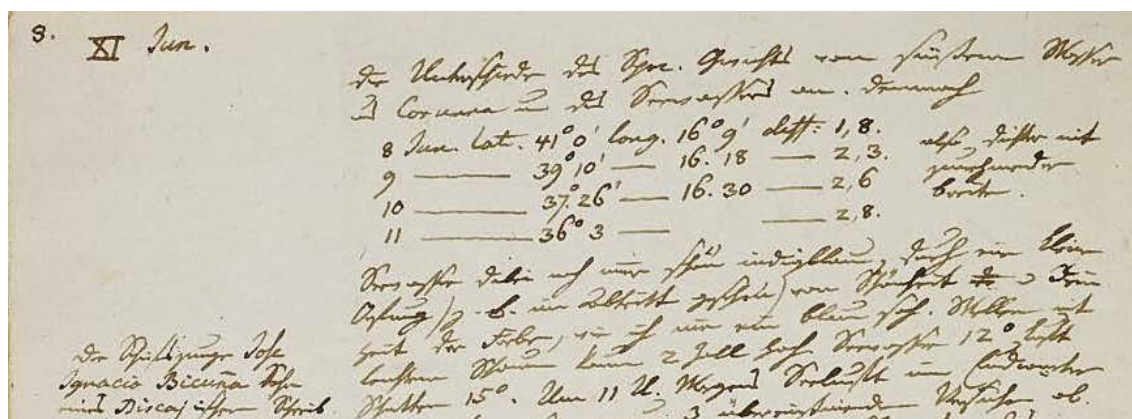 8.
XI Jun.
die Unterschiede des Spec. Gewichts vom süßem Wasser
aus Coruna u des Seewassers an. demnach
8 Jun. lat. 41° 0′ long. 16° 9′ diff: 1,8.
9 —— 39° 10′ — 16. 18 — 2,3.
10 —— 37° 26′ — 16. 30 — 2,6
11 —— 36° 3 — — 2,8.
also dichter mit
zunehmender
breite.
Seewasser dabei noch immer schön indigblau, durch eine kleine
Oefnung) z. b. im abtritt gesehen) von Schönheit u Fein
heit der Farbe, wie ich nie ein blau sah. Wellen mit
leichtem Schaum kaum 2 Zoll hoch Seewasser 12° Luft
Schatten 15°. Um 11 U. Morgens Seeluft im
3 übereinstimmenden Versuchen ob.
Der Schifsjunge Jose
Ignacio Bicuña Sohn
eines Biscajischen Schreib